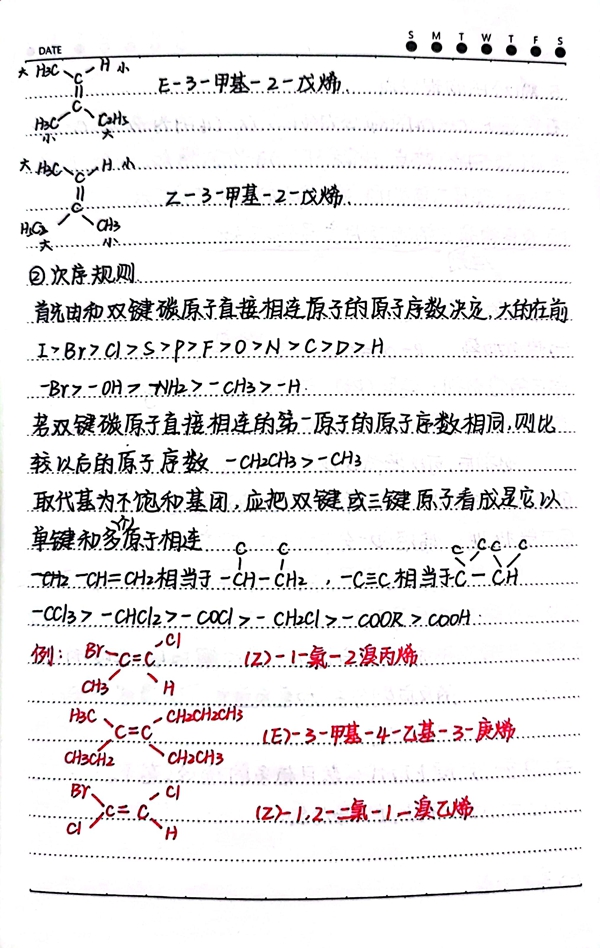 DATE
S M T W T F S
大 H3C H 小
C
E-3-甲基-2-戊烯.
C
H3C C2H5
小 大
大 H3C H 小
C
Z-3-甲基-2-戊烯.
C
H5C2 CH3
大 小
②次序规则.
首先由和双键碳原子直接相连原子的原子序数决定,大的在前
I>Br>Cl>S>P>F>O>N>C>D>H
-Br>-OH>-NH2>-CH3>-H.
若双键碳原子直接相连的第一原子的原子序数相同,则比
较以后的原子序数 -CH2CH3>-CH3
取代基为不饱和基团,应把双键或三键原子看成是它以
单键和多个原子相连
C C C C C C
-CH2-CH=CH2相当于-CH-CH2 , -C≡C相当于C-CH
-CCl3>-CHCl2>-COCl>-CH2Cl>-COOR>COOH.
例: Br Cl
C=C (Z)-1-氯-2溴丙烯
CH3 H
H3C CH2CH2CH3
C=C (E)-3-甲基-4-乙基-3-庚烯
CH3CH2 CH2CH3
Br Cl
C=C (Z)-1,2-二氯-1-溴乙烯
Cl H